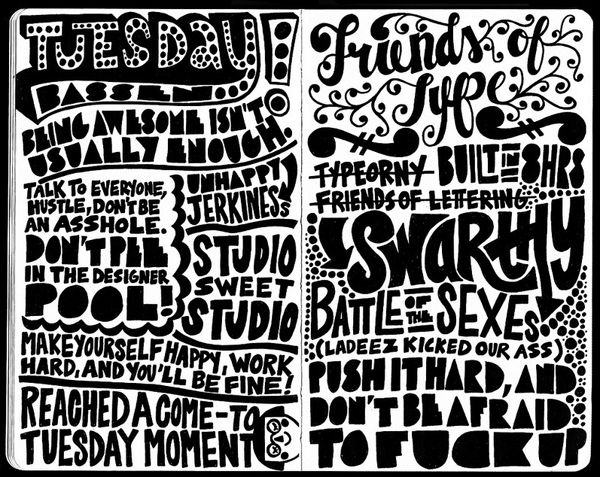 TUESDAY!
BASSEN..
BEING AWESOME ISN'T
USUALLY ENOUGH.
TALK TO EVERYONE,
HUSTLE, DON'T BE
AN ASSHOLE.
DON'T PEE
IN THE DESIGNER
POOL!
UNHAPPY
JERKINESS
STUDIO
SWEET
STUDIO
MAKE YOURSELF HAPPY, WORK
HARD, AND YOU'LL BE FINE!
REACHED A COME-TO
TUESDAY MOMENT
Friends of
Type
TYPEORNY BUILT IN 8HRS
FRIENDS OF LETTERING
SWARTHY
BATTLE OF THE SEXES
(LADEEZ KICKED OUR ASS)
PUSH IT HARD, AND
DON'T BE AFRAID
TO FUCK UP